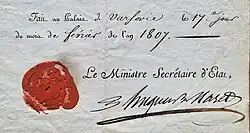 Fait au Palais de Varsovie le 17.e jour
du mois de février de l'an 1807.
Le Ministre Secrétaire d'Etat,
Hugues B. Maret